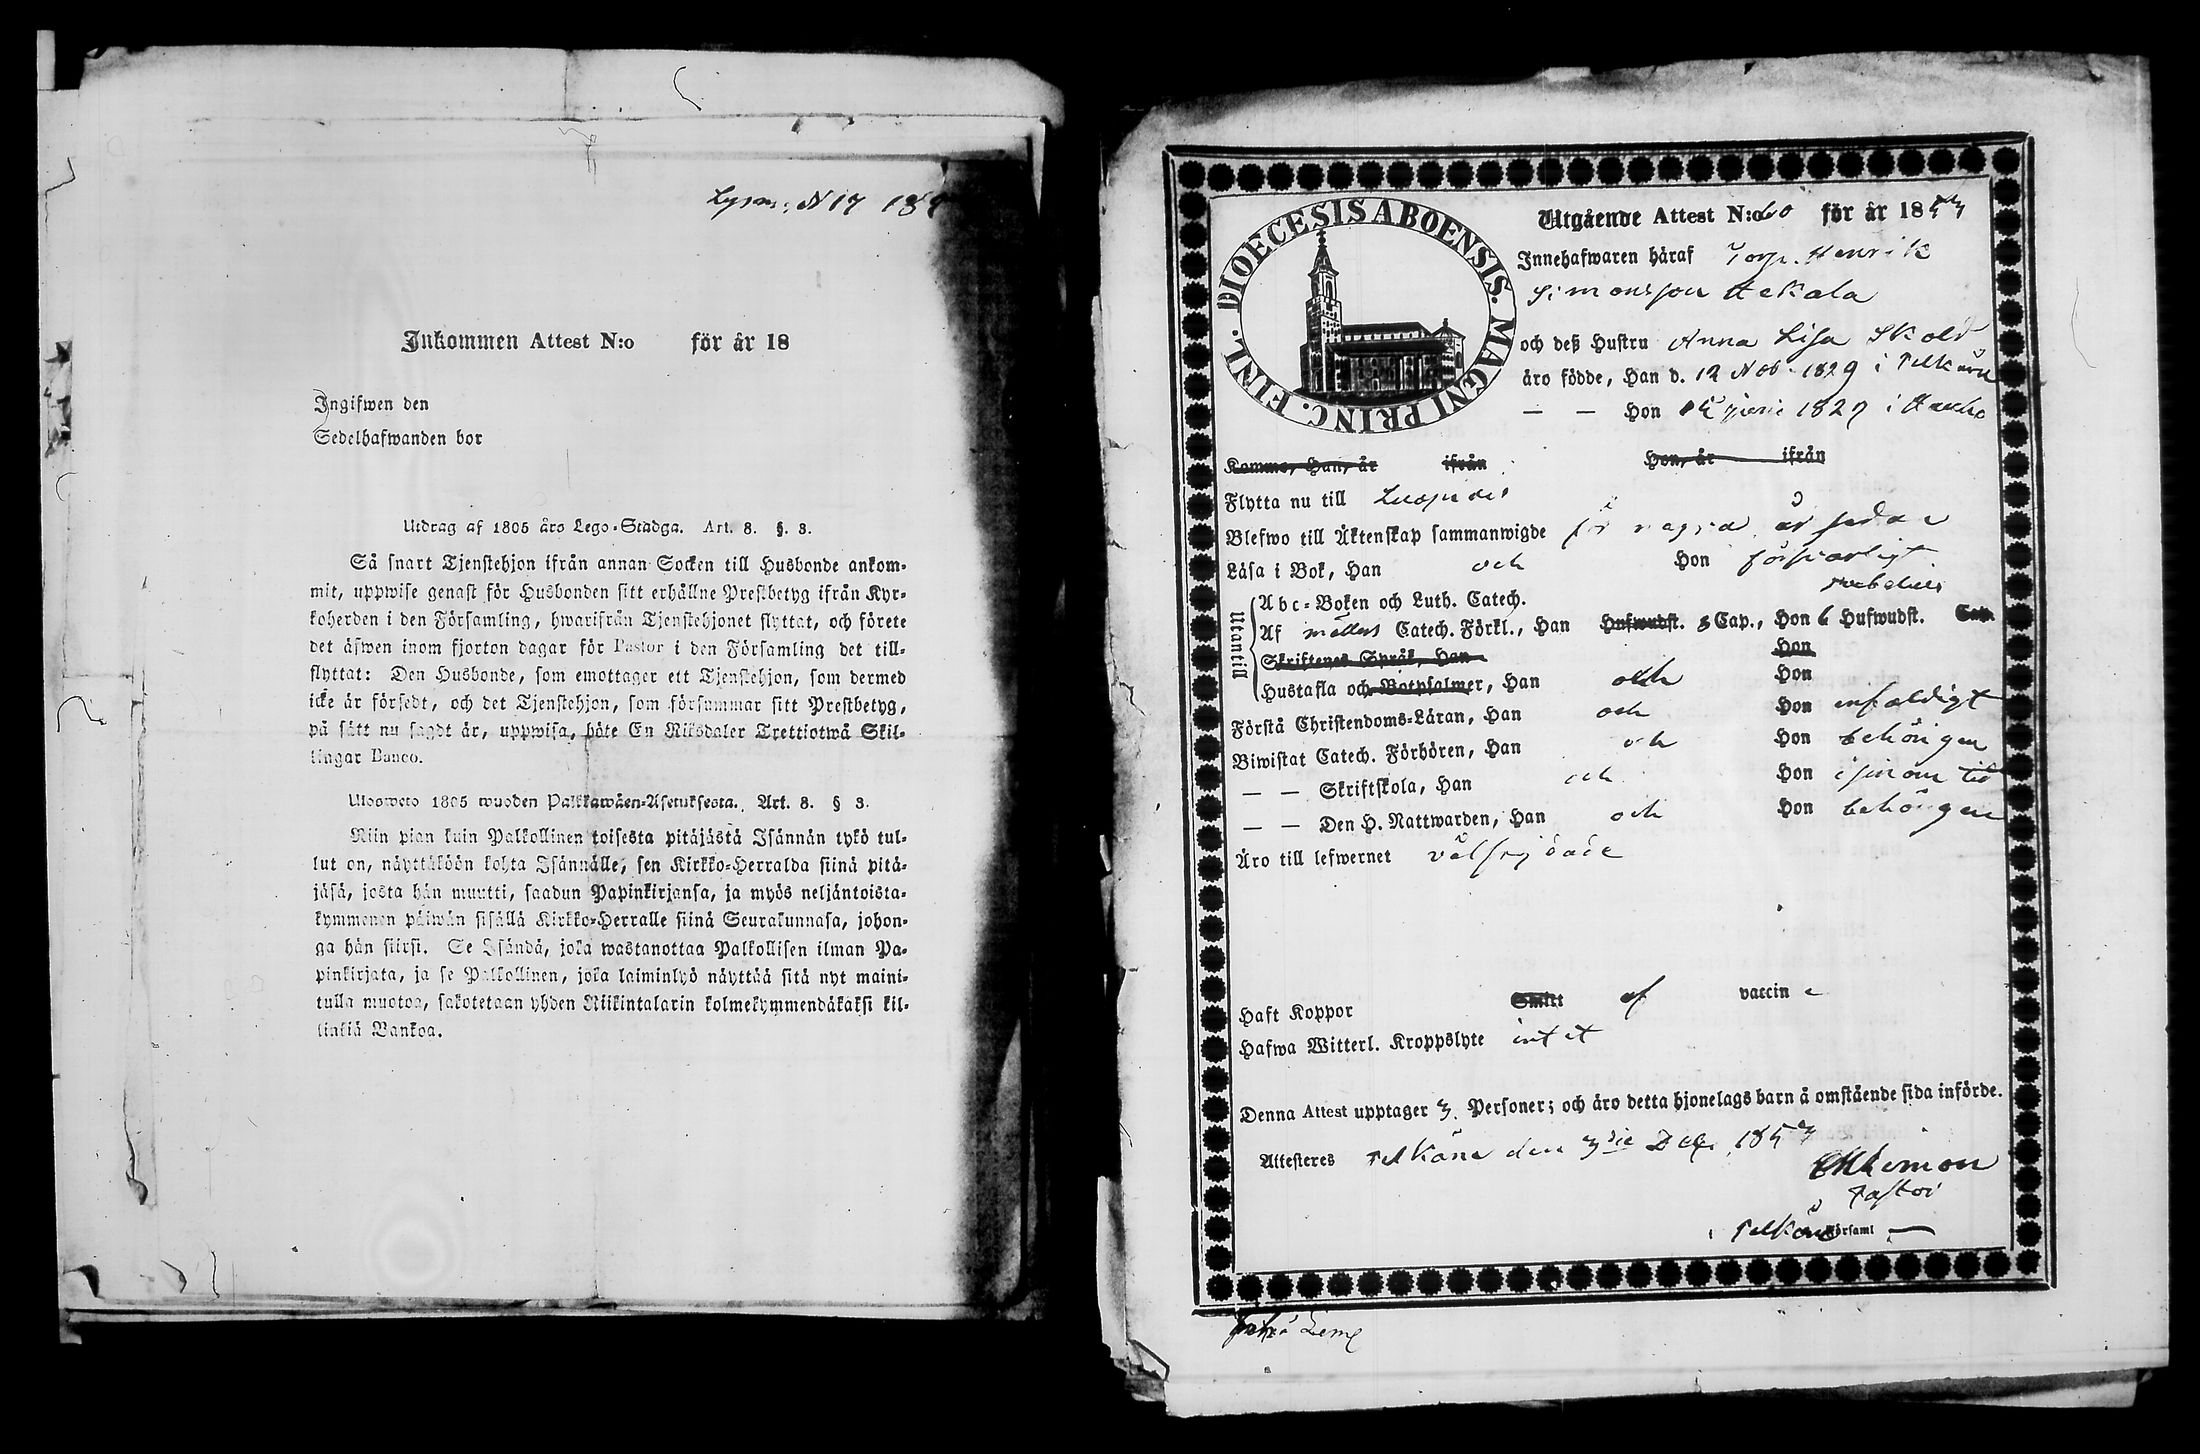 Lysm. N 17 18
Inkommen Attest N:o för år 18
Ingifwen den
Sedelhafwanden bor
Utdrag af 1805 års Lego-Stadga. Art. 8. §. 3.
Så snart Tjenstehjon ifrån annan Socken till Husbonde ankom-
mit, uppwise genast för Husbonden sitt erhållne Prestbetyg ifrån Kyr-
koherden i den Församling, hwarifrån Tjenstehjonet flyttat, och förete
det äfwen inom fjorton dagar för Pastor i den Församling det till-
flyttat: Den Husbonde, som emottager ett Tjenstehjon, som dermed
icke är försedt, och det Tjenstehjon, som försummar sitt Prestbetyg,
på sätt nu sagdt är, uppwisa, böte En Riksdaler Trettiotwå Skil-
lingar Banco.
Ulosweto 1805 wuoden Palkkawäen-Asetuksesta. Art. 8. § 3.
Niin pian kuin Palkollinen toisesta pitäjästä Isännän tykö tul-
lut on, näyttäköön kohta Isännälle, sen Kirkko-Herralda siinä pitä-
jäsä, josta hän muutti, saadun Papinkirjansa, ja myös neljäntoista-
kymmenen päiwän sisällä Kirkko-Herralle siinä Seurakunnasa, johon-
ga hän siirsi. Se Isändä, joka wastanottaa Palkollisen ilman Pa-
pinkirjata, ja se Palkollinen, joka laiminlyö näyttää sitä nyt maini-
tulla muotoa, sakotetaan yhden Riikintalarin kolmekymmendäkaksi kil-
linkiä Bankoa.
DIOECESIS ABOENSIS. MAGNI PRINC. FINL.
Utgående Attest N:o 60 för år 1853
Innehafwaren häraf Torp. Henrik
Simonsson Hekala
och deß Hustru Anna Lisa Sköld
äro födde, Han d. 12 Nob 1829 i Pelkäne
— — Hon juni 1829 i Hauho
Komne, Han, år ifrån Hon, år ifrån
Flytta nu till Luopiois
Blefwo till Äktenskap sammanwigde för några år sedan
Läsa i Bok, Han och Hon försvarligt
Utantill
Abc-Boken och Luth. Catech.
Af Möllers Catech. Förkl., Han Hufwudst. 3 Cap., Hon 6 Hufwudst. Cap.
Skriftenes Språk, Han Hon
Hustafla och Botpsalmer, Han och Hon
Förstå Christendoms-Läran, Han och Hon enfaldigt
Biwistat Catech. Förhören, Han och Hon behörigen
— — Skriftskola, Han och Hon i sinom tid
— — Den H. Nattwarden, Han och Hon behörigen
Äro till lefwernet välfrejdade
Haft Koppor Smitt af vaccin e
Hafwa Witterl. Kroppslyte intet
Denna Attest upptager 3. Personer; och äro detta hjonelags barn å omstående sida införde.
Attesteres Pelkäne den 3die Dec. 1853
Pastor
i Pelkäne Församl